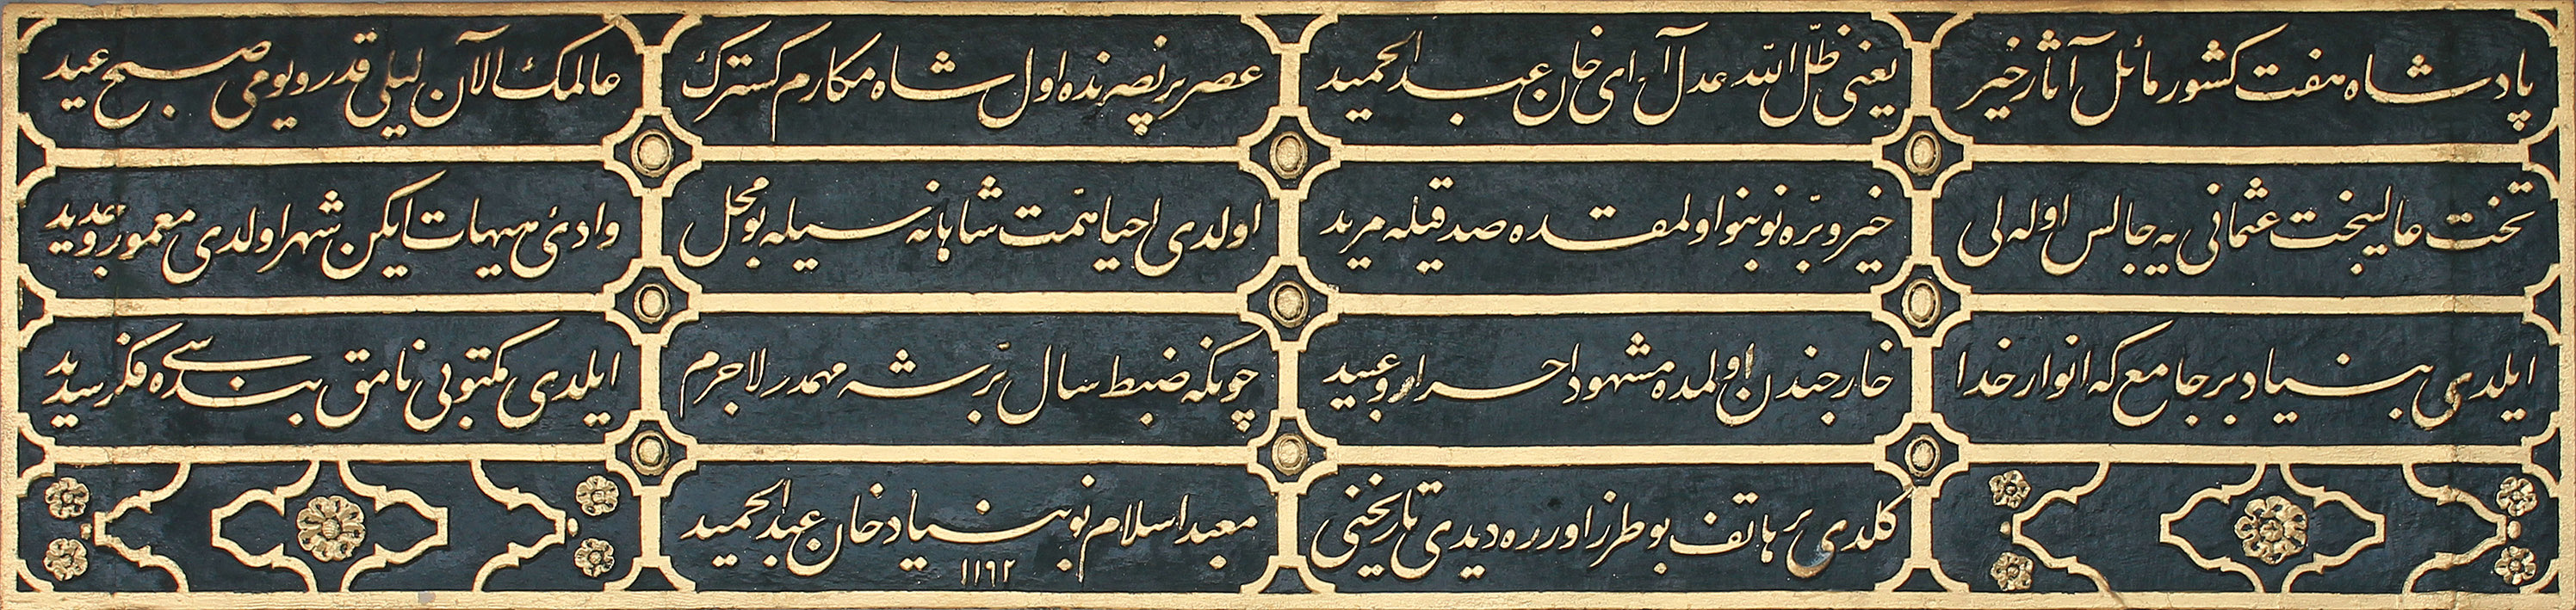 پادشاه هفت كشور مائل آثار خير
يعنى ظلّ اللّه عدل آراى خان عبد الحميد
عصر پر نصرنده اول شاه مكارم كسترك
عالمك الآن ليلى قدر و يومى صبح عيد
تخت عاليبخت عثمانى يه جالس اوله لى
خير و برّه نو بنو اولمقده صدقيله مريد
اولدى احيا همّت شاهانه سيله بو محل
وادئ هيهات ايكن شهر اولدى معمور و عديد
ايلدى بنياد بر جامع كه انوار خدا
خارجندن اولمده مشهود احرار و عبيد
چونكه ضبط سال برّ شه مهمدر لاجرم
ايلدى مكتوبى نامق بنده سى فكر سديد
كلدى بر هاتف بو طرز اوزره ديدى تاريخنى
معبد اسلام نو بنياد خان عبد الحميد
١١٩٢